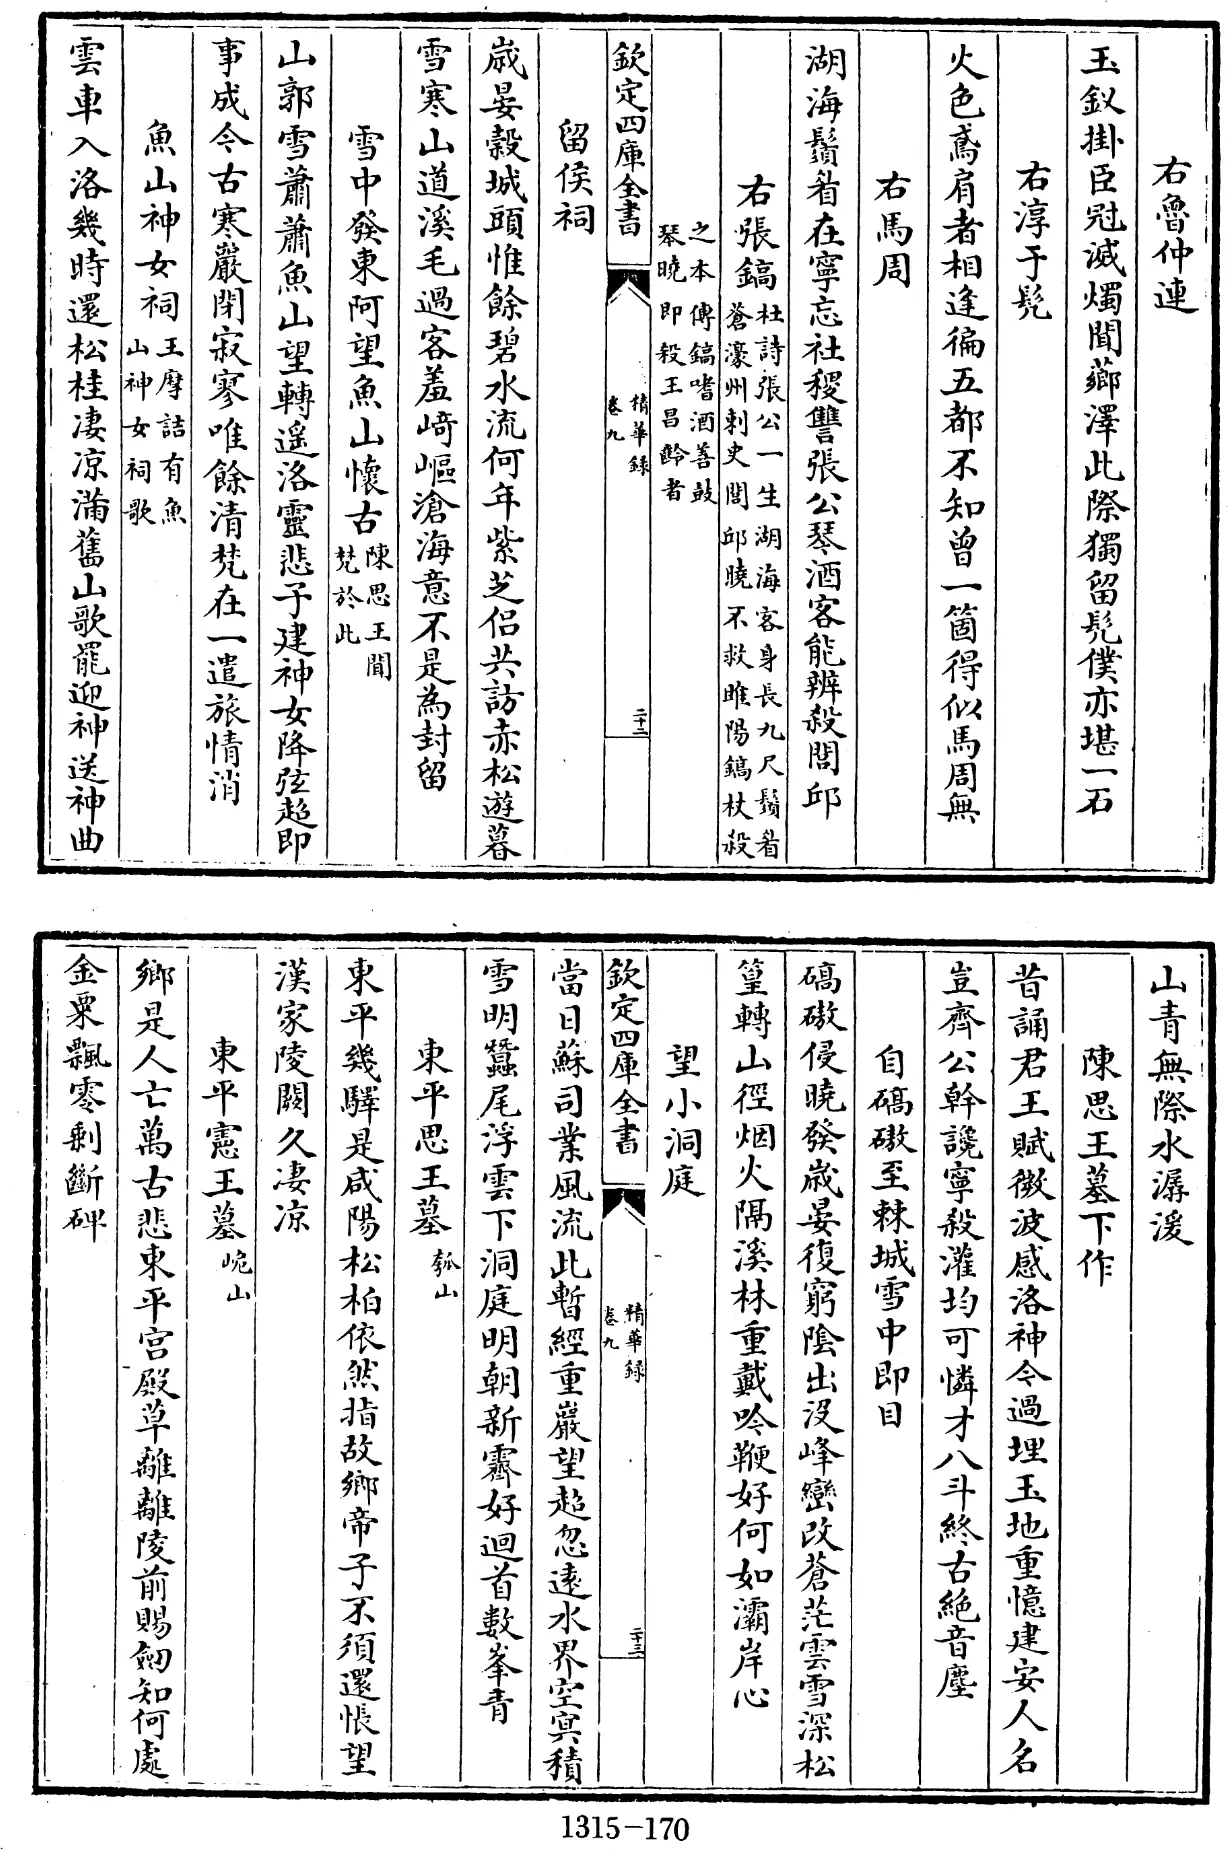 右魯仲連
玉釵掛臣冠滅燭聞薌澤此際獨留髠僕亦堪一石
右淳于髠
火色鳶肩者相逢徧五都不知曾一箇得似馬周無
右馬周
湖海鬚眉在寧忘社稷讐張公琴酒客能辨殺閭邱
右張鎬杜詩張公一生湖海客身長九尺鬚眉
蒼濠州刺史閭邱曉不救睢陽鎬杖殺
之本傳鎬嗜酒善鼓
琴曉即殺王昌齡者
欽定四庫全書
精華録
卷九
二十二
留侯祠
歲晏穀城頭惟餘碧水流何年紫芝侣共訪赤松遊暮
雪寒山道溪毛過客羞﨑嶇滄海意不是為封留
雪中發東阿望魚山懷古陳思王聞
梵於此
山郭雪蕭蕭魚山望轉遥洛靈悲子建神女降弦超即
事成今古寒巖閉寂寥唯餘清梵在一遣旅情消
魚山神女祠王摩詰有魚
山神女祠歌
雲車入洛幾時還松桂凄凉滿舊山歌罷迎神送神曲
山青無際水潺湲
陳思王墓下作
昔誦君王賦微波感洛神今過埋玉地重憶建安人名
豈齊公幹讒寧殺灌均可憐才八斗終古絶音塵
自碻磝至棘城雪中即目
碻磝侵曉發歲晏復窮陰出没峰巒改蒼茫雲雪深松
篁轉山徑烟火隔溪林重戴吟鞭好何如灞岸心
望小洞庭
欽定四庫全書
精華録
卷九
二十三
當日蘇司業風流此暫經重巖望超忽遠水界空冥積
雪明蠶尾浮雲下洞庭明朝新霽好迴首數峯青
東平思王墓瓠山
東平幾驛是咸陽松柏依然指故鄉帝子不須還悵望
漢家陵闕久凄凉
東平憲王墓峗山
鄉是人亡萬古悲東平宫殿草離離陵前賜劒知何處
金粟飄零剩斷碑
1315-170